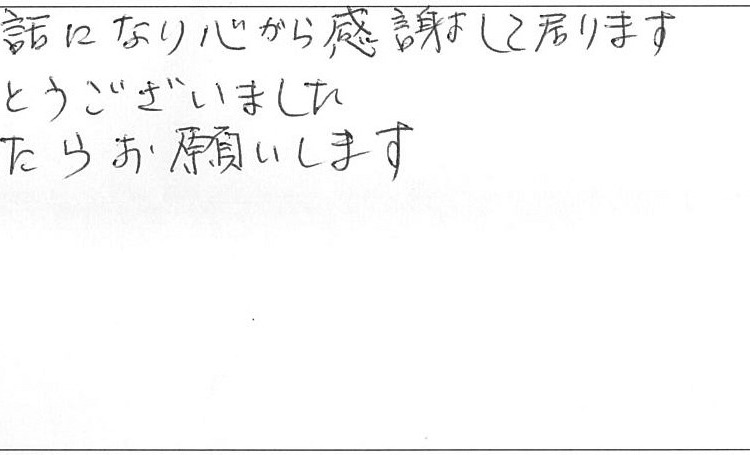 話になり心から感謝して居ります
とうございました
たらお願いします